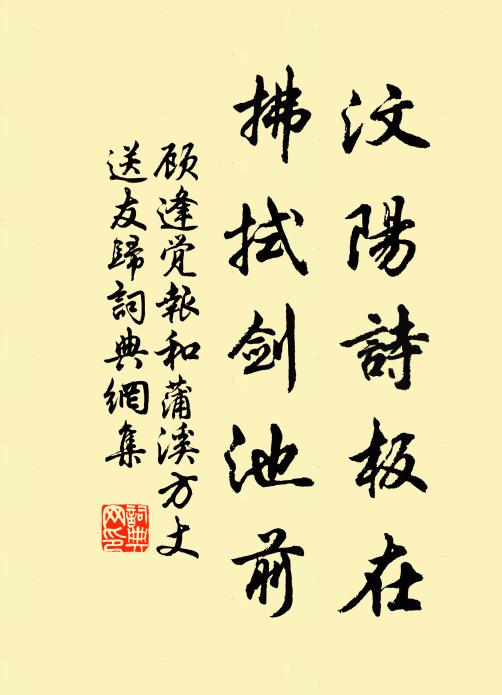 汶陽詩板在
拂拭剑池前
顾逢觉報和蒲溪方丈
送友歸詞典網集
詞典
网印